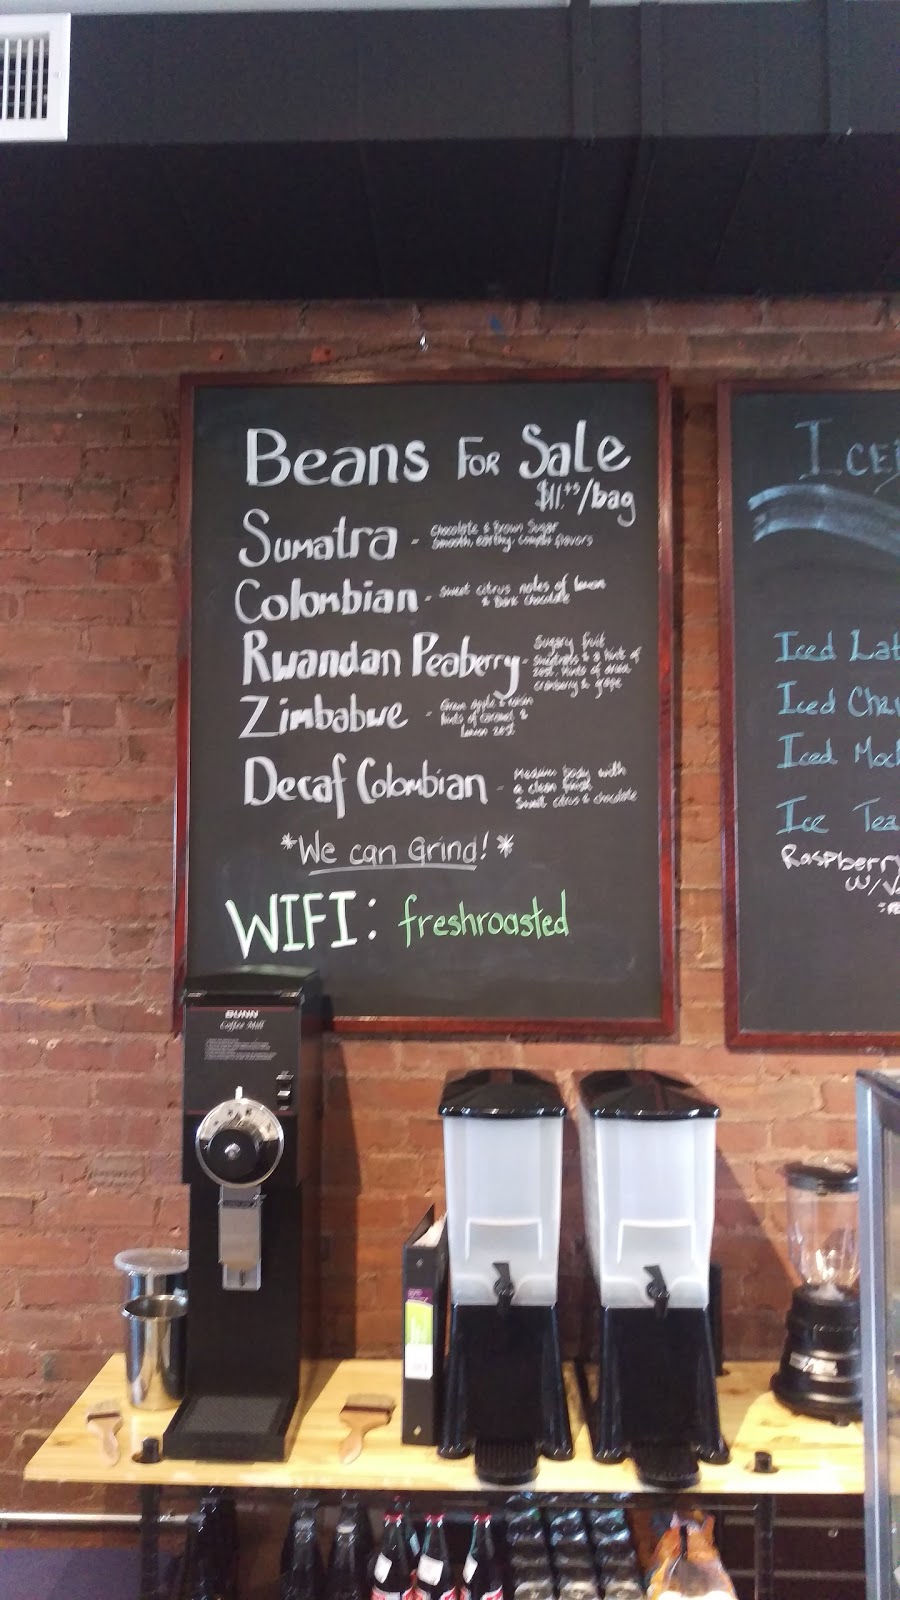 Beans For Sale
$11.45/bag
Sumatra - Chocolate & Brown Sugar
Smooth, earthy, complex flavors
Colombian - Sweet citrus notes of lemon
& Dark chocolate
Rwandan Peaberry - Sugary fruit
sweetness & a hint of
zest. Hints of dried
cranberry & grape
Zimbabwe - Green apple & raisin
hints of caramel &
lemon zest
Decaf Colombian - Medium body with
a clean finish
Sweet citrus & chocolate
*We can Grind! *
WIFI: freshroasted
Iced
Iced Lat
Iced Cha
Iced Moc
Ice Tea
Raspberry
W/
BUNN
Coffee Mill